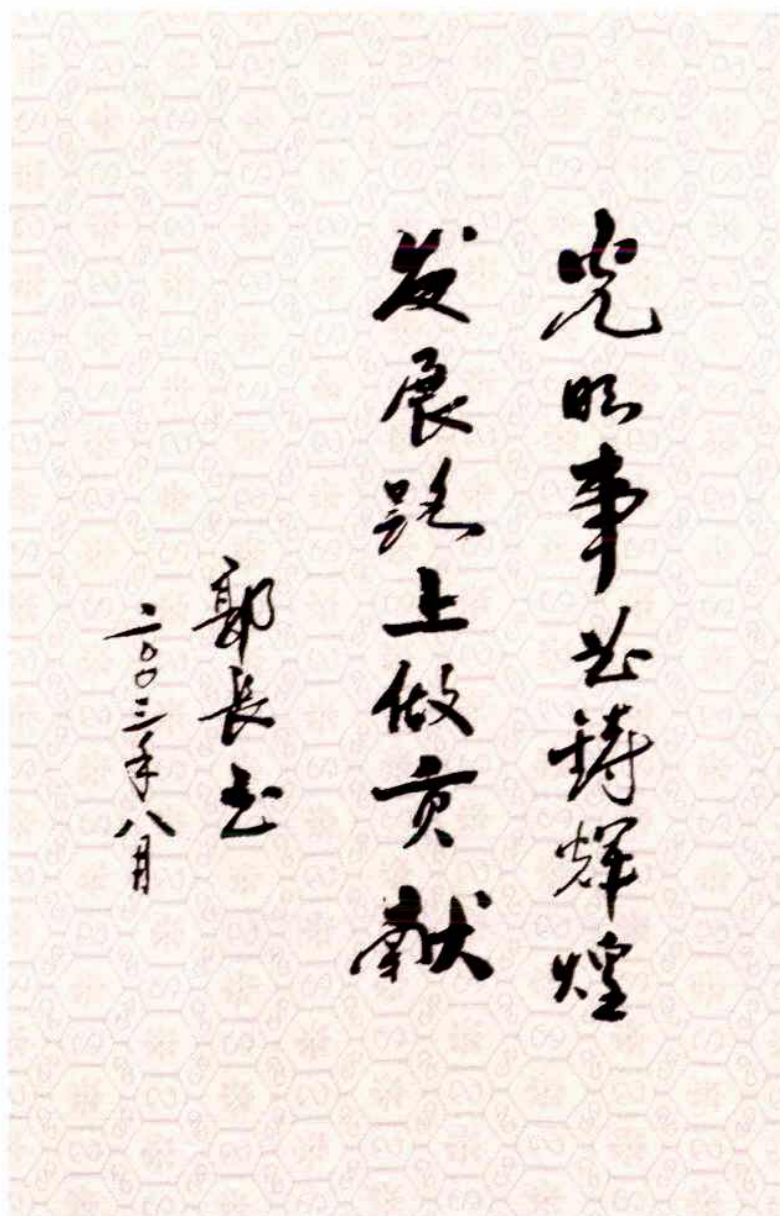 光明事业铸辉煌
发展路上做贡献
郭长志
二〇〇三年八月